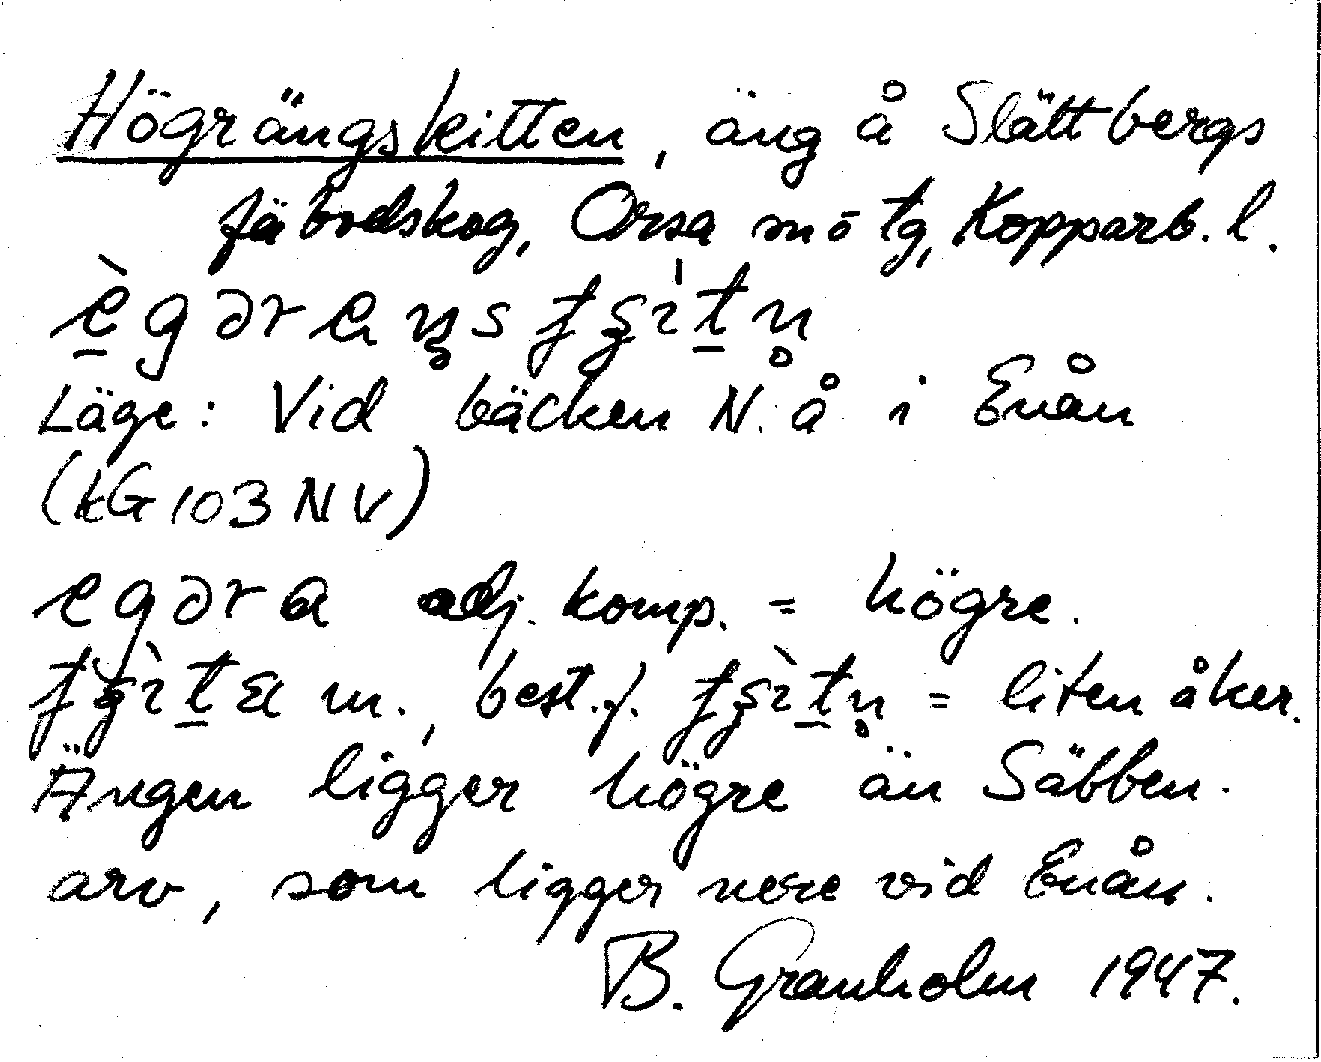 Högrängskitten, äng å Slättbergs
fäbodskog, Orsa sn o tg, Kopparb. l.
Läge: Vid bäcken N. å i Enån
(kG 103 NV)
egəra adj. komp. = högre.
m., best. f. = liten åker.
Ängen ligger högre än Säbben.
arv, som ligger nere vid Enån.
B. Granholm 1947.